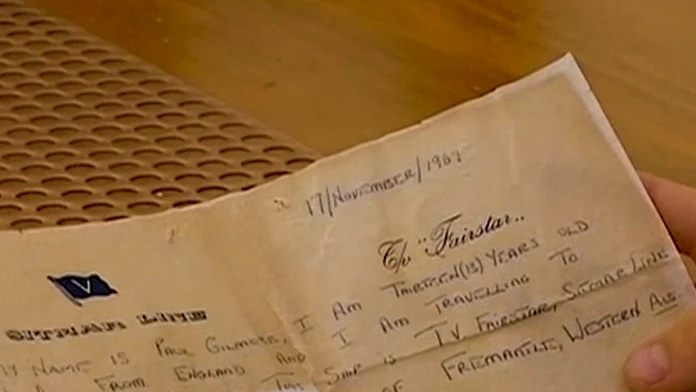 17/NOVEMBER/1969
T/v "Fairstar"
V
SITMAR LINE
MY NAME IS PAUL GILMORE, I AM THIRTEEN(13) YEARS OLD
FROM ENGLAND AND I AM TRAVELLING TO
THIS SHIP IS TV FAIRSTAR, SITMAR LINE
OF FREMANTLE, WESTERN AUS.